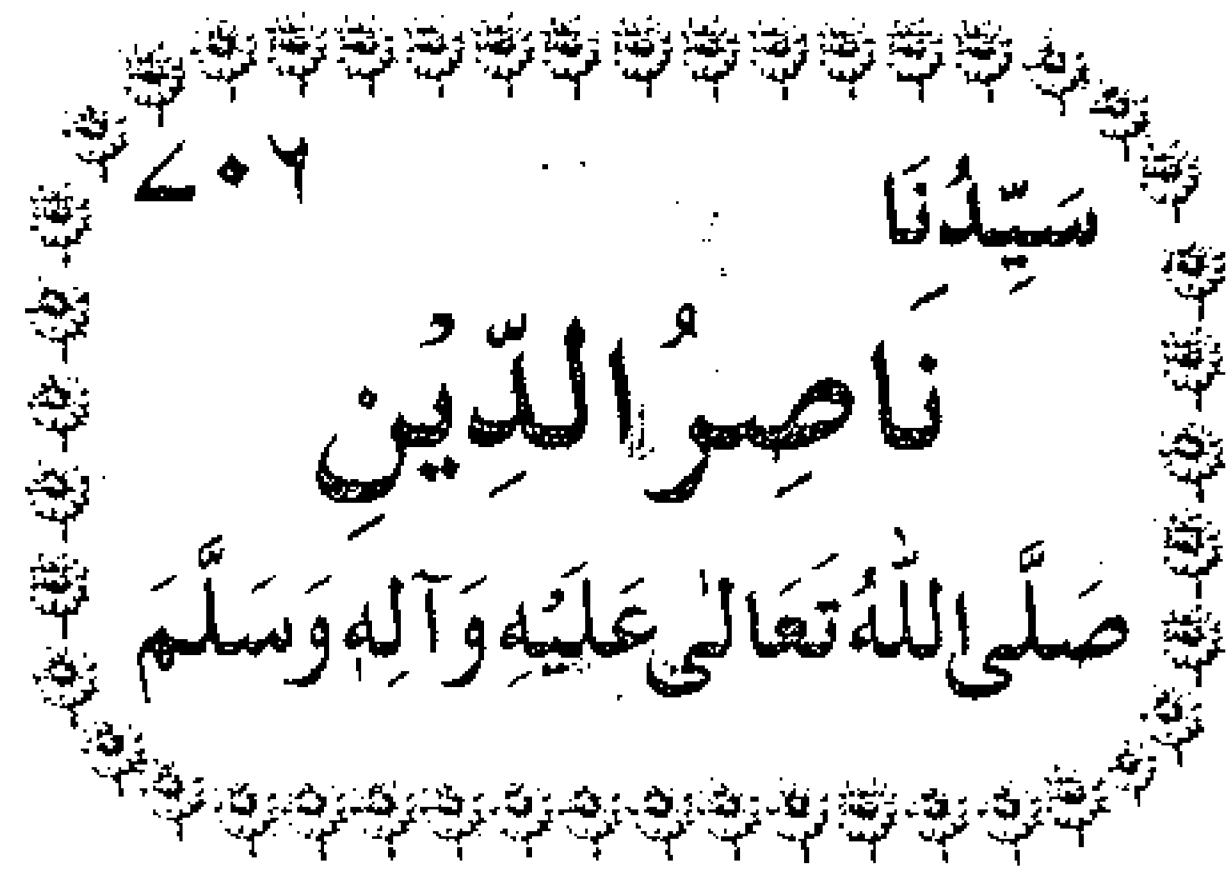 سَيِّدُنَا ۷۰۶
نَاصِرُ الدِّيْنِ
صَلَّى اللّٰهُ تَعَالىٰ عَلَيْهِ وَآلِهٖ وَسَلَّمَ